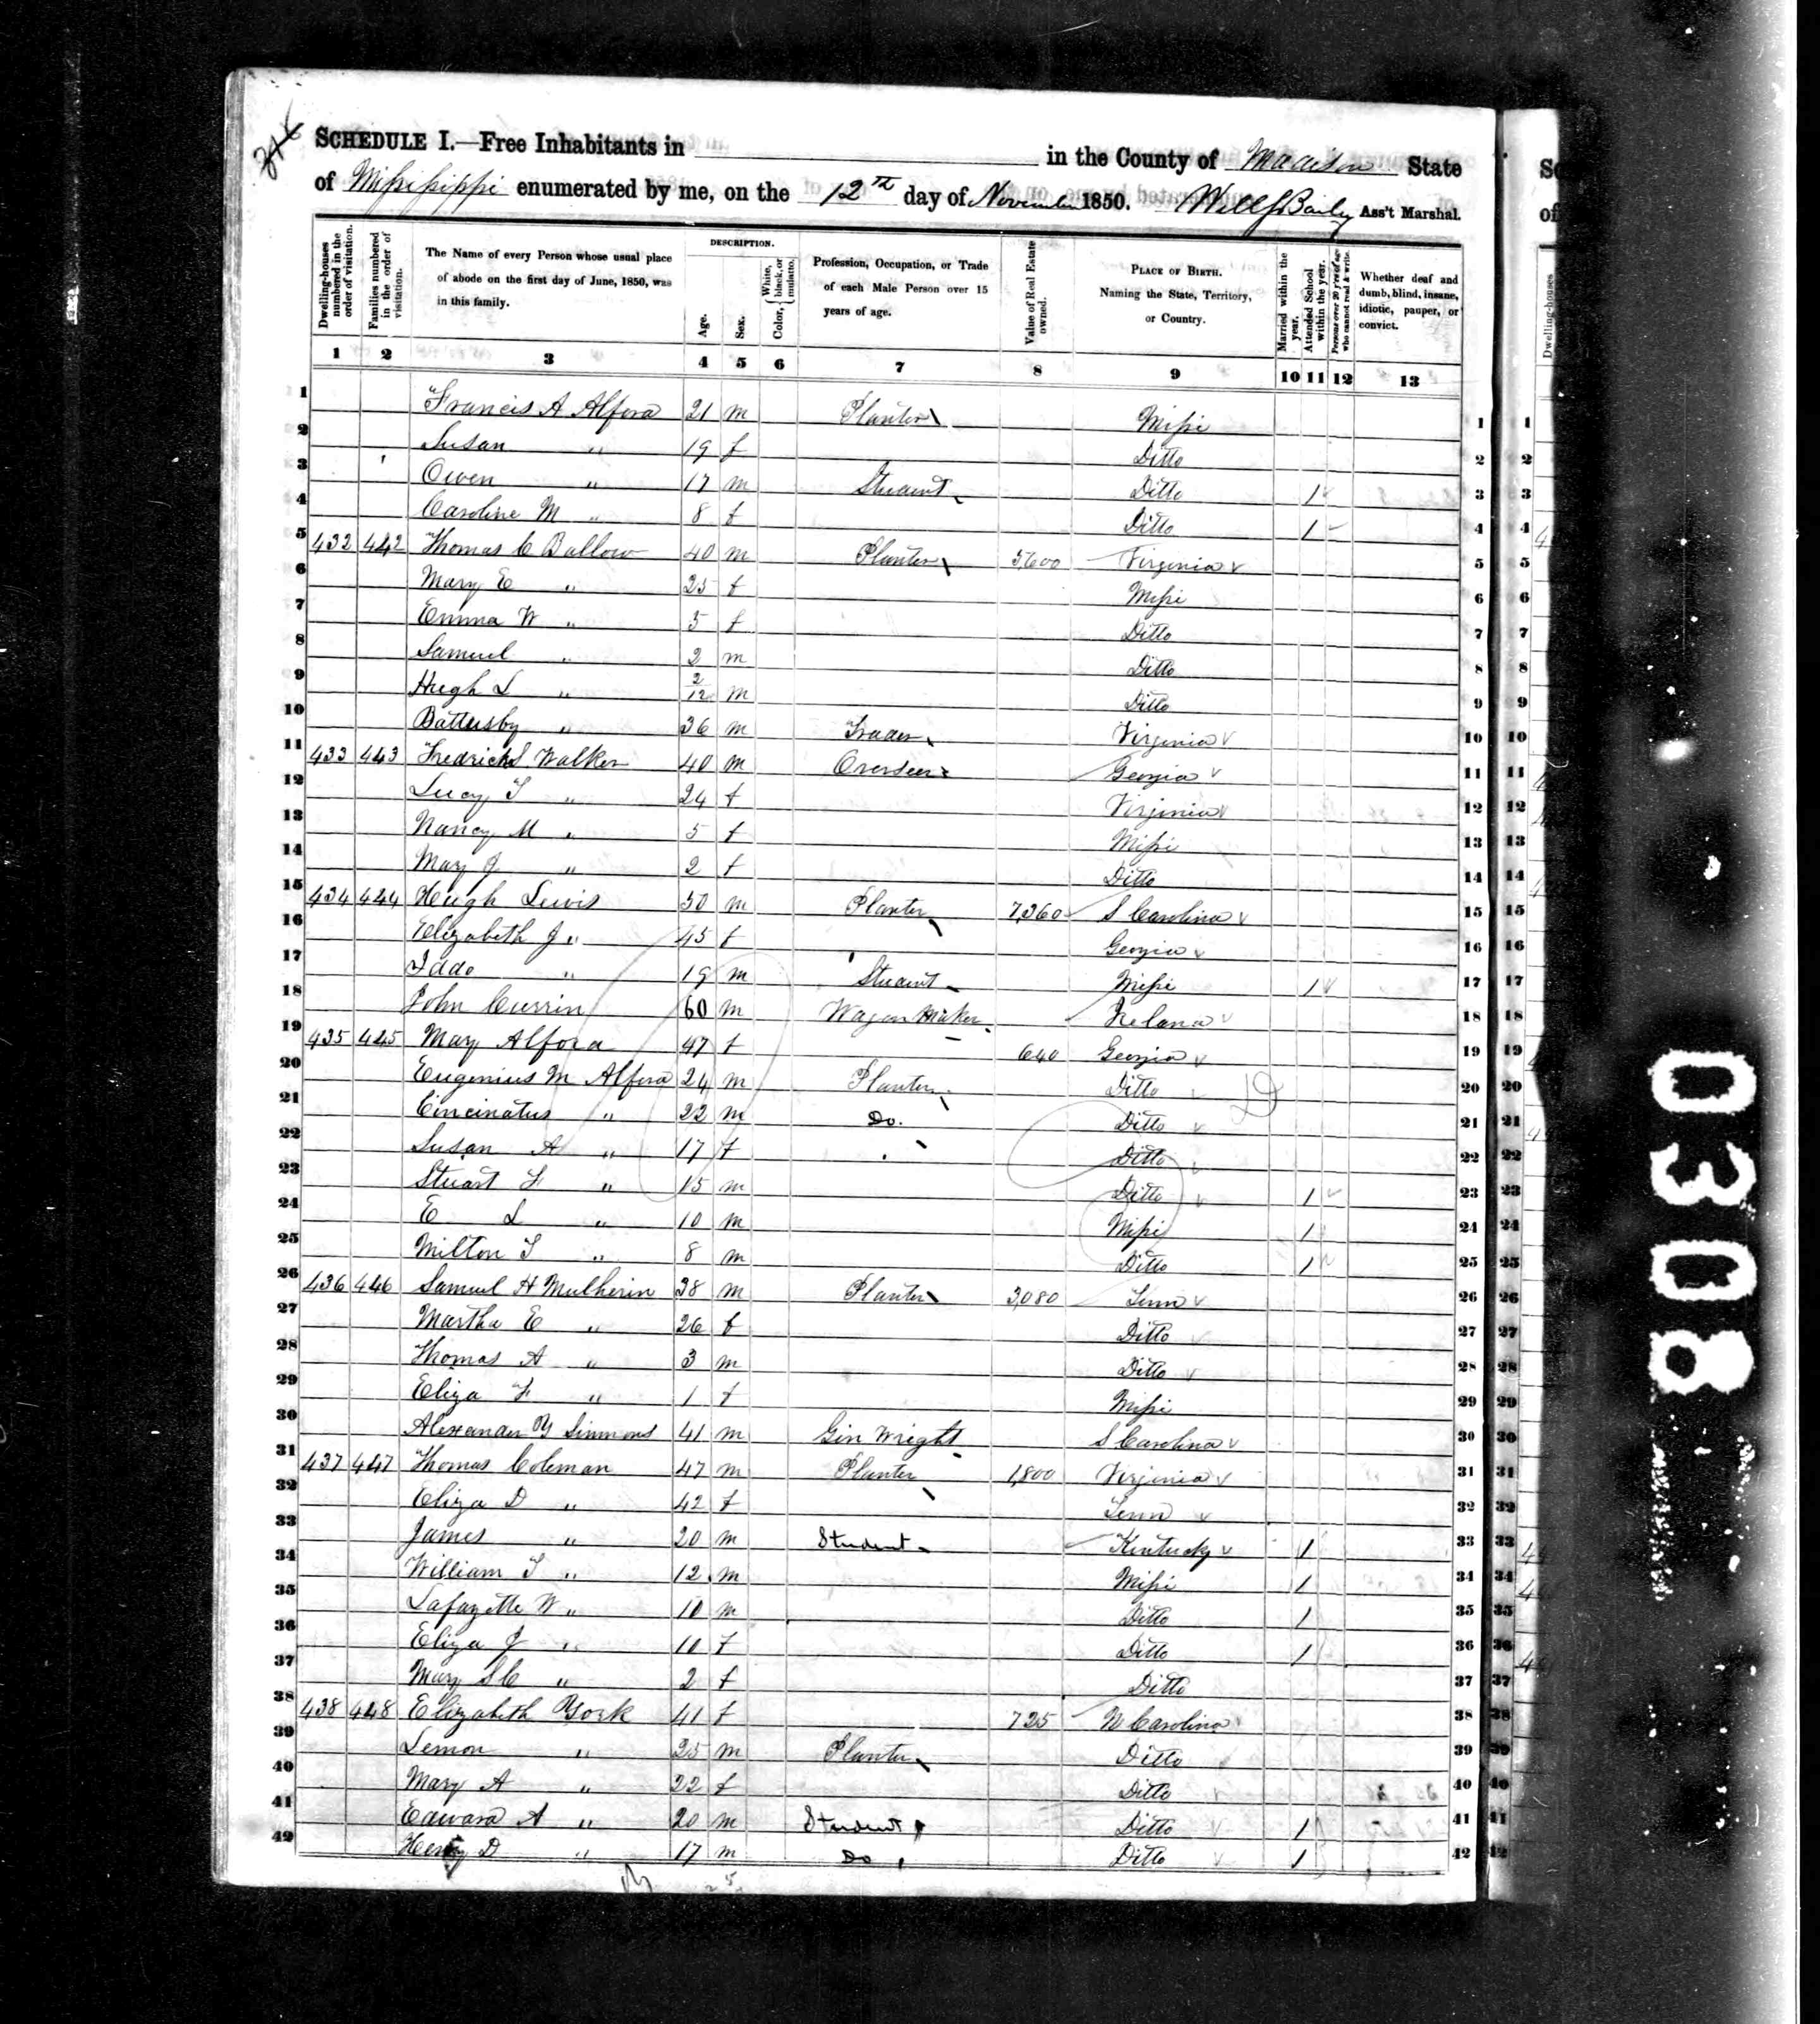 SCHEDULE I.—Free Inhabitants in in the County of Madison State
of Missisippi enumerated by me, on the 12th day of November 1850. Ass't Marshal.
Dwelling-houses numbered in the order of visitation.
Families numbered in the order of visitation.
The Name of every Person whose usual place of abode on the first day of June, 1850, was in this family.
DESCRIPTION.
Age.
Sex.
Color, { White, black, or mulatto.
Profession, Occupation, or Trade of each Male Person over 15 years of age.
Value of Real Estate owned.
PLACE OF BIRTH. Naming the State, Territory, or Country.
Married within the year.
Attended School within the year.
Persons over 20 y'rs of age who cannot read & write.
Whether deaf and dumb, blind, insane, idiotic, pauper, or convict.
1 2 3 4 5 6 7 8 9 10 11 12 13
1 Francis A Alford 21 m Planter Missi 1
2 Susan " 19 f Ditto 2
3 Owen " 17 m Student Ditto 1 3
4 Caroline M " 8 f Ditto 1 4
5 432 442 Thomas C Ballow 40 m Planter 5,600 Virginia 5
6 Mary E " 25 f Missi 6
7 Emma W " 5 f Ditto 7
8 Samuel " 2 m Ditto 8
9 Hugh L " 2/12 m Ditto 9
10 Battersby " 36 m Trader Virginia 10
11 433 443 Fredrick S Walker 40 m Overseer Georgia 11
12 Lucy T " 24 f Virginia 12
13 Nancy M " 5 f Missi 13
14 Mary J " 2 f Ditto 14
15 434 444 Hugh Lewis 50 m Planter 7,360 S Carolina 15
16 Elizabeth J " 45 f Georgia 16
17 Iddo " 19 m Student Missi 1 17
18 John Currin 60 m Wagon Maker Ireland 18
19 435 445 Mary Alford 47 f 640 Georgia 19
20 Eugenius M Alford 24 m Planter Ditto 20
21 Cincinatus " 22 m Do. Ditto 21
22 Susan A " 17 f Ditto 22
23 Stuart F " 15 m Ditto 1 23
24 E L " 10 m Missi 1 24
25 Milton T " 8 m Ditto 1 25
26 436 446 Samuel H Mulherin 38 m Planter 3,080 Tenn 26
27 Martha E " 26 f Ditto 27
28 Thomas A " 3 m Ditto 28
29 Eliza F " 1 f Missi 29
30 Alexander Y Simmons 41 m Gin Wright S Carolina 30
31 437 447 Thomas Coleman 47 m Planter 1,800 Virginia 31
32 Eliza D " 42 f Tenn 32
33 James " 20 m Student Kentucky 1 33
34 William T " 12 m Missi 1 34
35 Lafayette W " 10 m Ditto 1 35
36 Eliza J " 10 f Ditto 1 36
37 Mary S C " 2 f Ditto 37
38 438 448 Elizabeth York 41 f 725 N Carolina 38
39 Lemon " 25 m Planter Ditto 39
40 Mary A " 22 f Ditto 40
41 Edward A " 20 m Student Ditto 1 41
42 Henry D " 17 m Do Ditto 1 42
0308